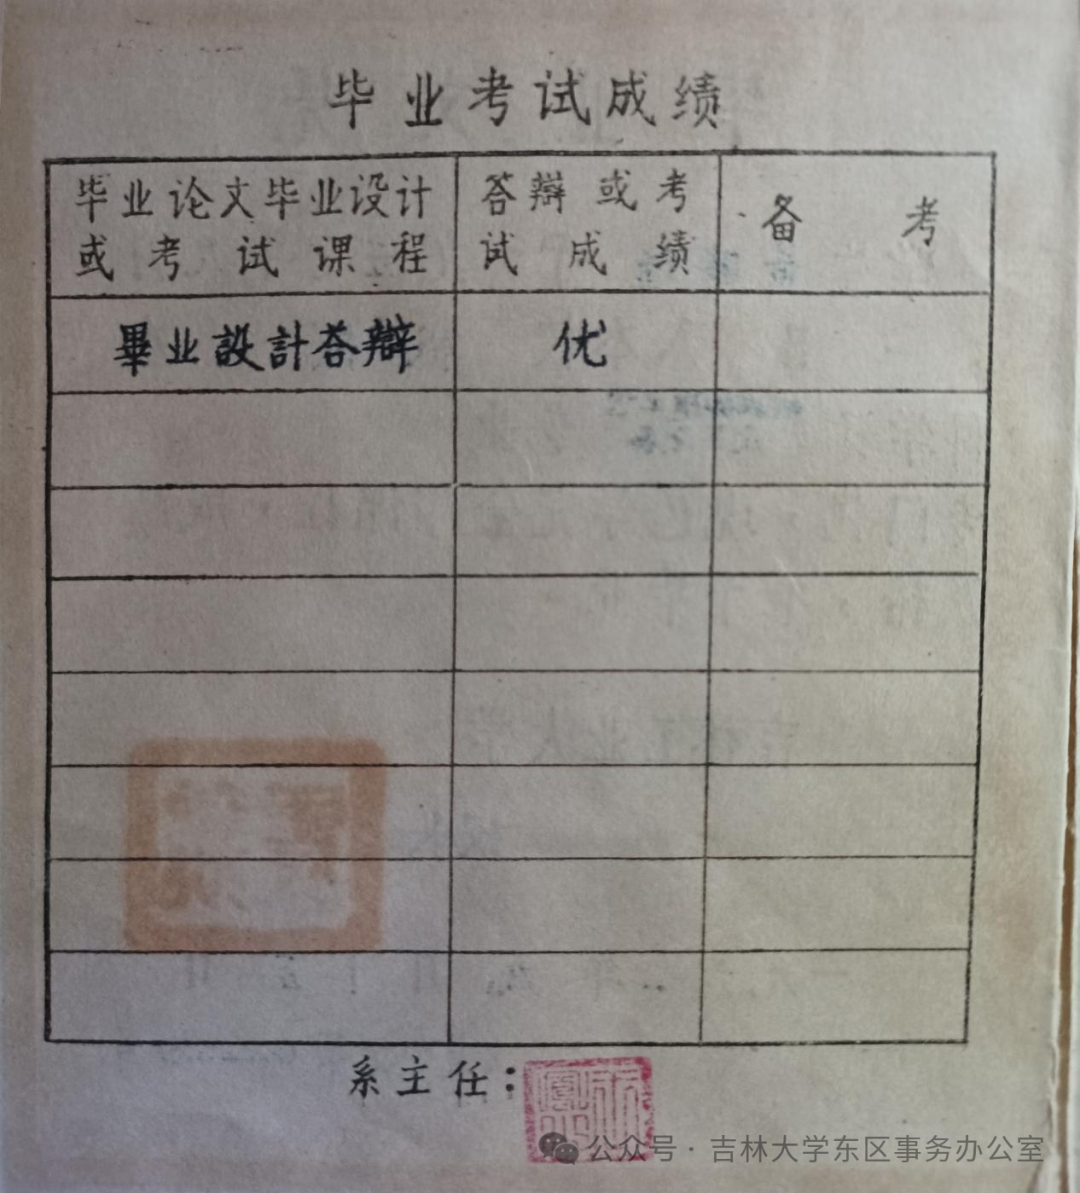 毕业考试成绩
毕业论文毕业设计
或考试课程
答辩或考
试成绩
备考
畢业設計答辯
优
系主任：
公众号·吉林大学东区事务办公室